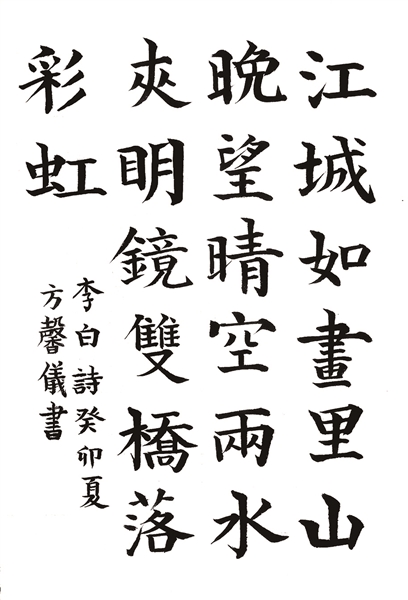 江城如畫里山
晚望晴空兩水
夾明鏡雙橋落
彩虹
李白詩癸卯夏
方馨儀書